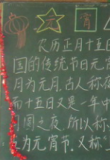 元 宵
农历正月十五日
国的传统节日元宵
月为元月,古人称夜
而十五日又是一年中
月圆之夜,所以称
五为元宵节,又称